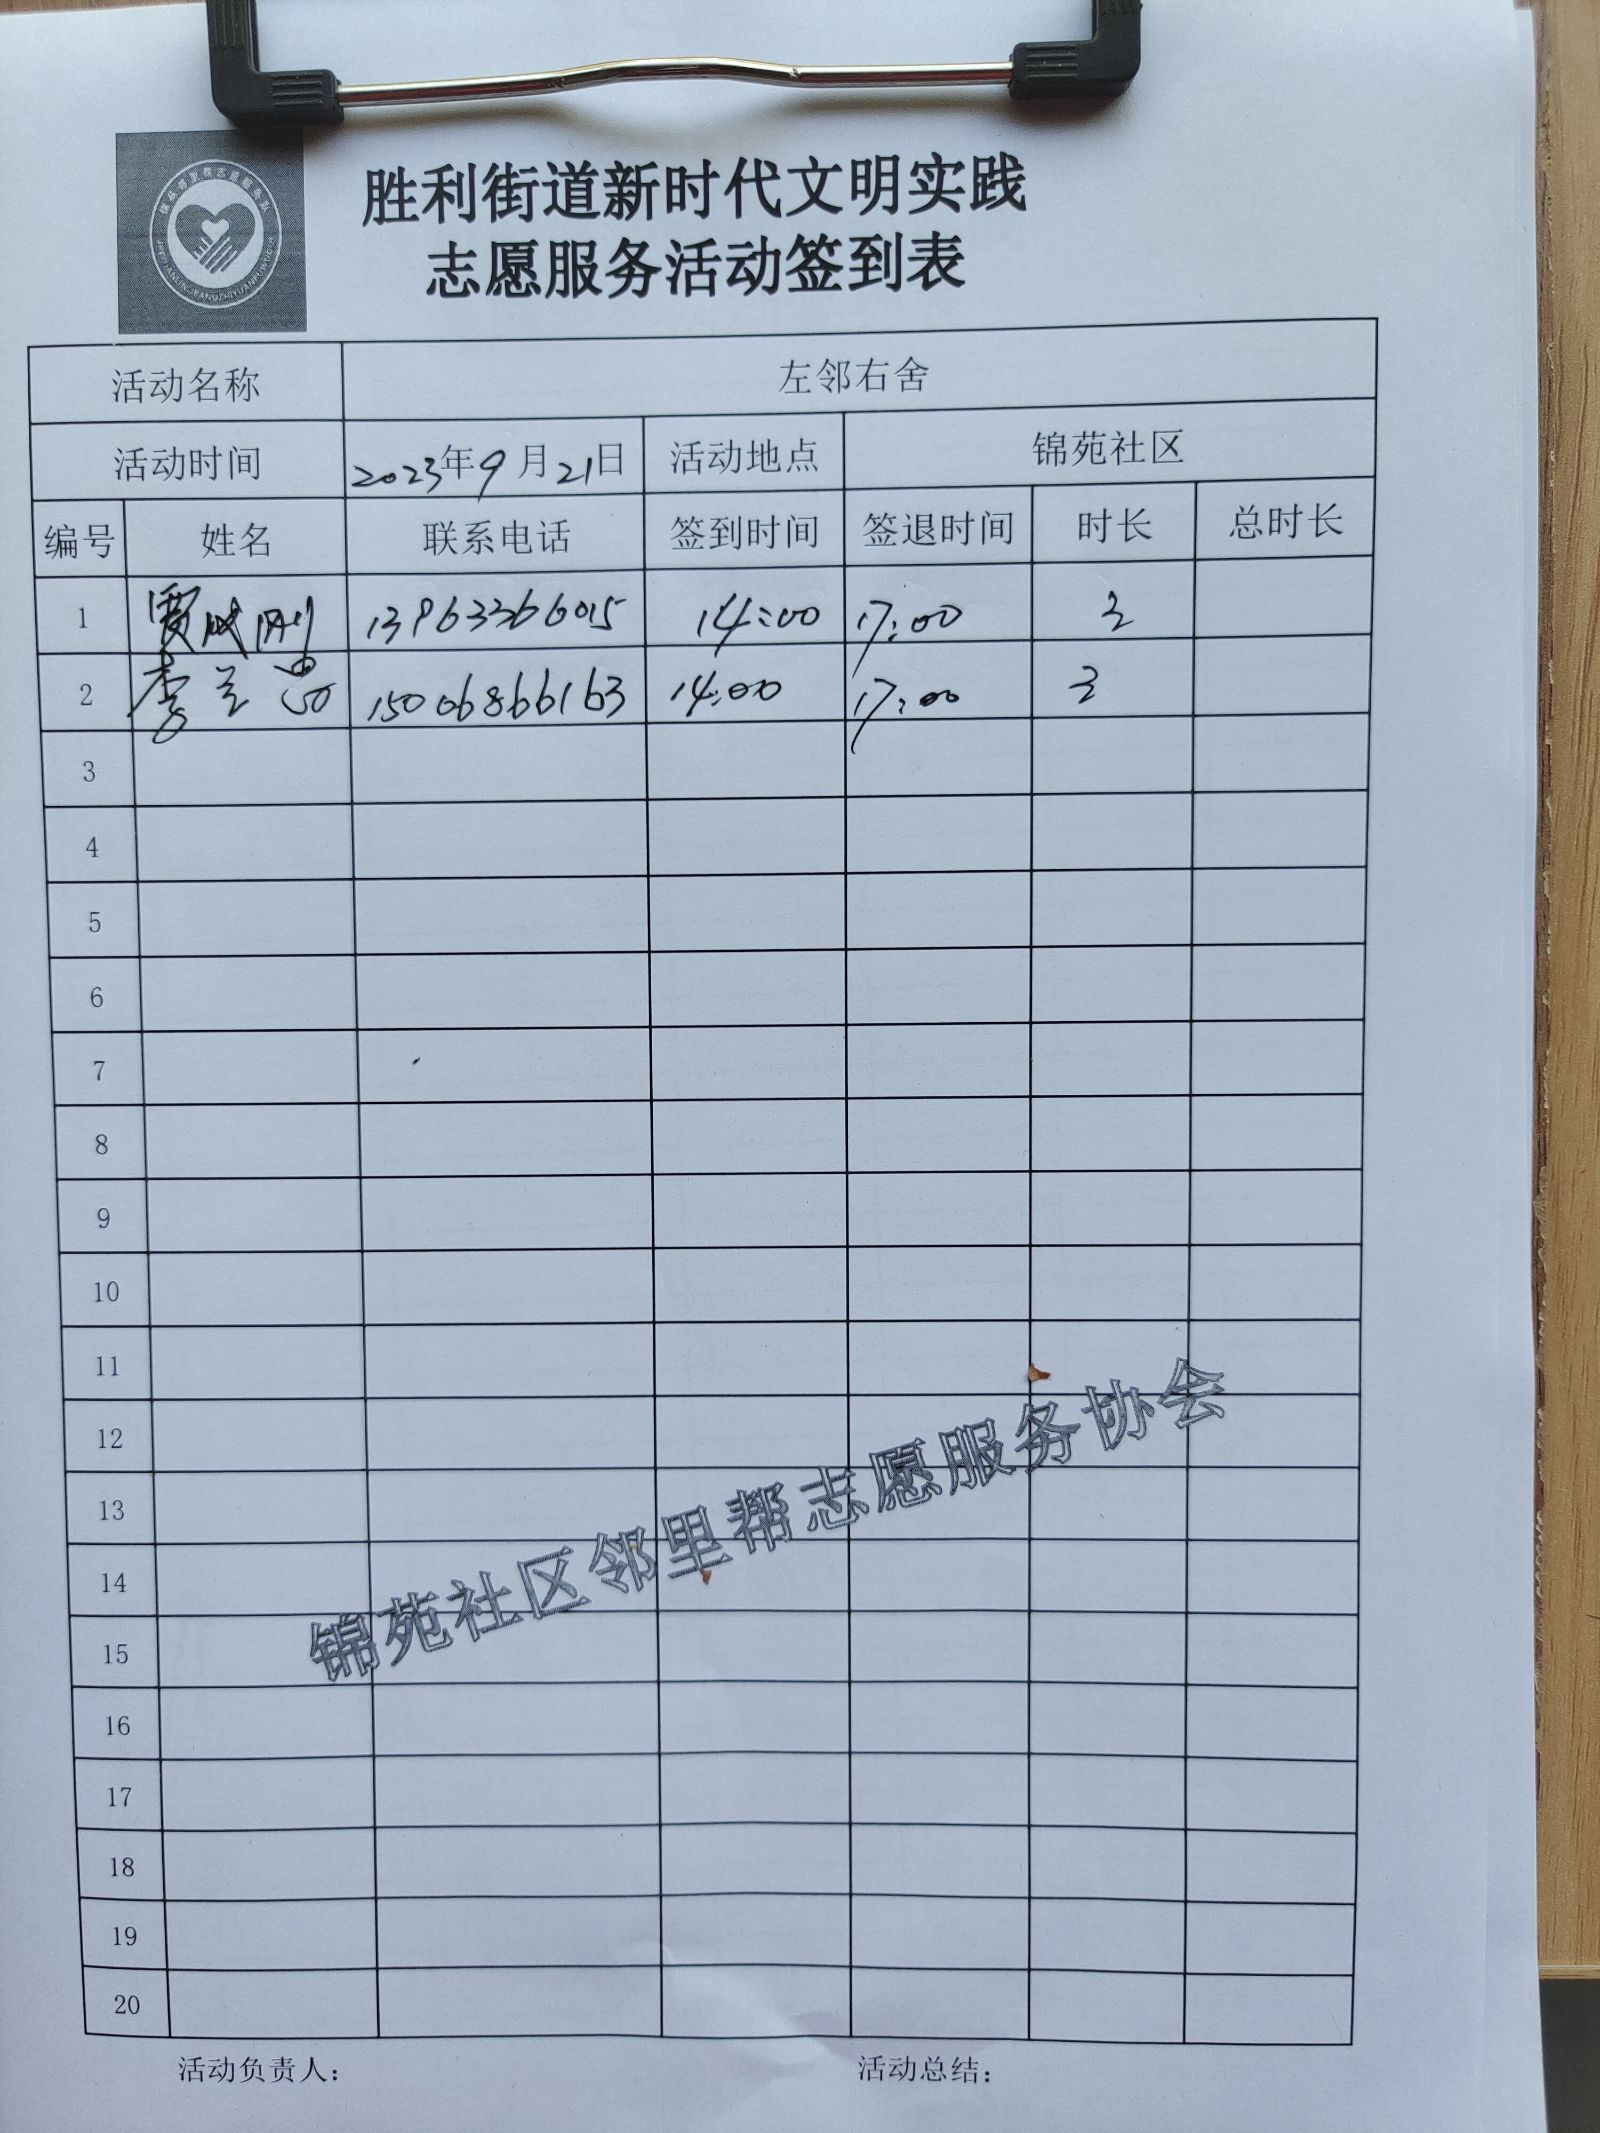 胜利街道新时代文明实践
志愿服务活动签到表
活动名称 左邻右舍
活动时间 2023年9月21日 活动地点 锦苑社区
编号 姓名 联系电话 签到时间 签退时间 时长 总时长
1 贾成刚 13963366015 14:00 17:00 3
2 李兰 15006866163 14:00 17:00 3
3
4
5
6
7
8
9
10
11
12
13
14
15
16
17
18
19
20
锦苑社区邻里帮志愿服务协会
活动负责人： 活动总结：